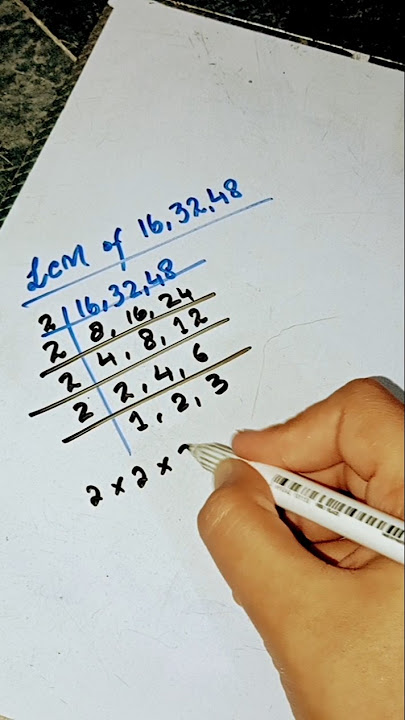 LCM of 16,32,48
2 16,32,48
2 8, 16, 24
2 4, 8, 12
2 2, 4, 6
1, 2, 3
2 × 2 ×